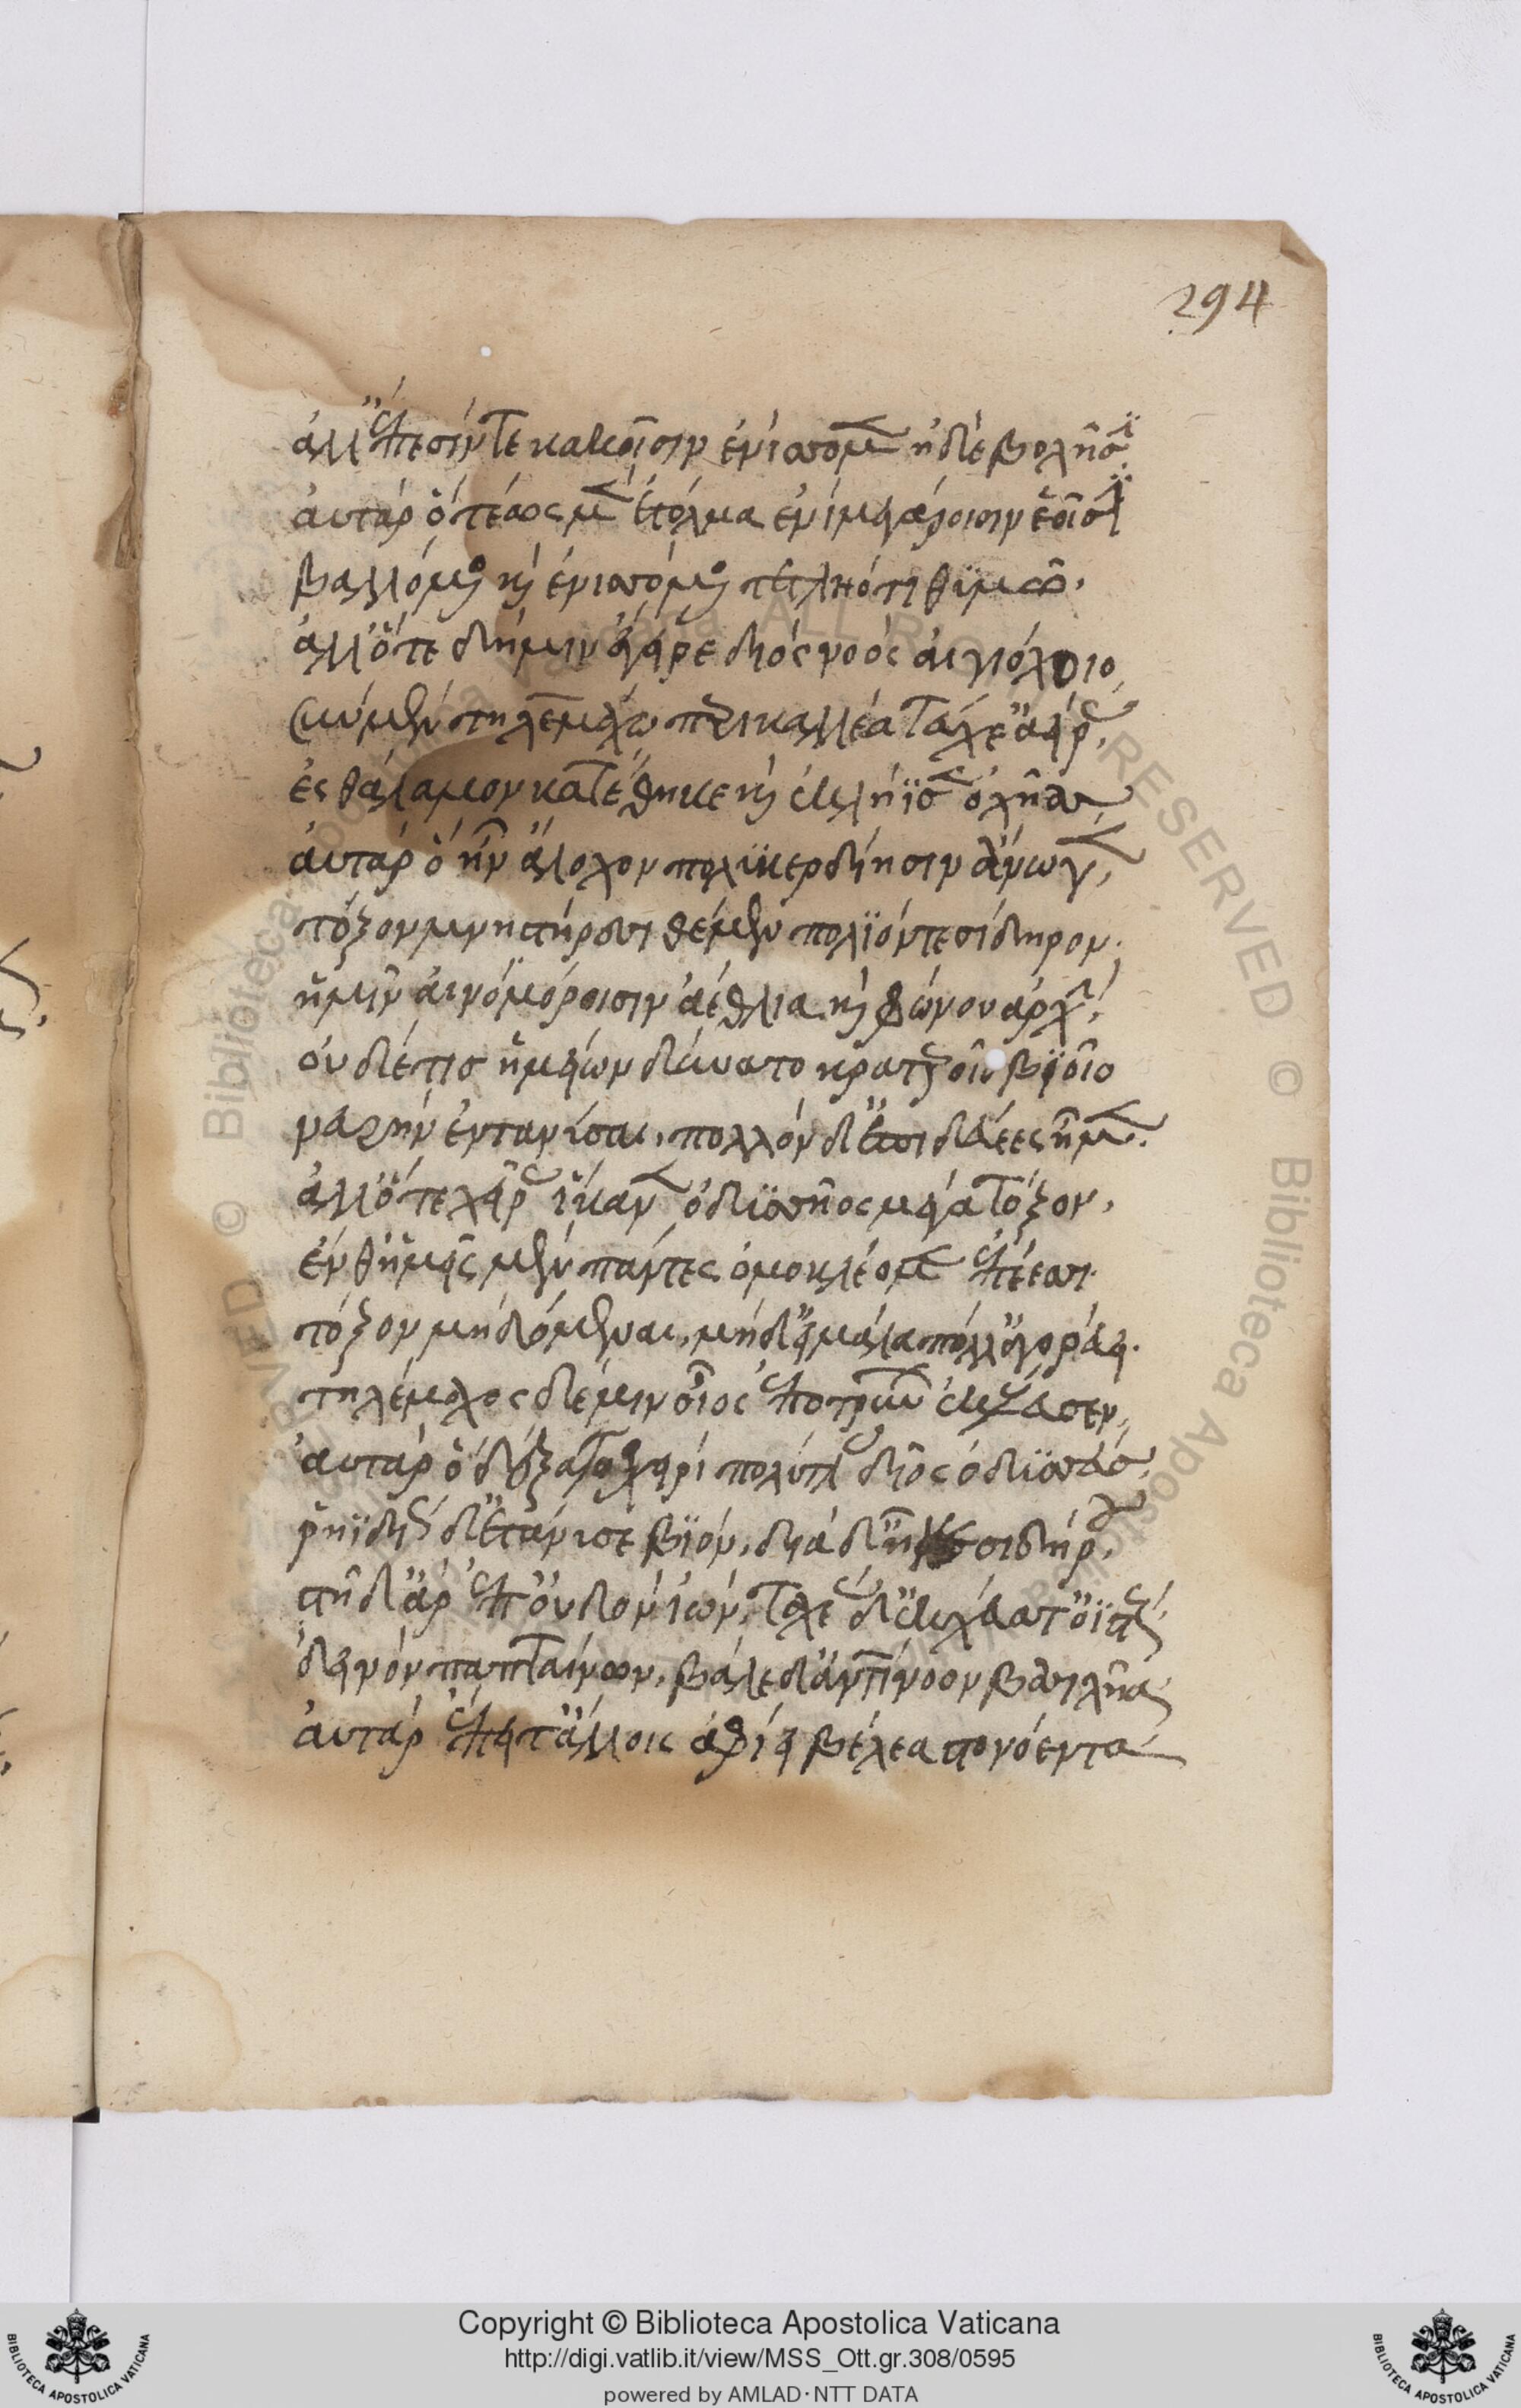 294
ἀλλ' ἔπεσίν τε κακοῖσιν ἐνίσσομεν ἠδὲ βολῇσιν
ἀυτὰρ ὁ τέως μὲν ἐτόλμα ἐνὶ μεγάροισιν ἑοῖσι
βαλλόμενος καὶ ἐνισσόμενος τετληότι θυμῶ.
ἀλλ' ὅτε δή μιν ἔγειρε διὸς νόος ἀιγιόχοιο
σὺν μὲν τηλεμάχω περικαλλέα τεύχε' ἀείρας,
ἐς θάλαμον κατέθηκε καὶ ἐκλήϊσεν ὀχῆας
ἀυτὰρ ὁ ἣν ἄλοχον πολυκερδίησιν ἄνωγεν,
τόξον μνηστήρσσι θέμεν πολιόν τε σίδηρον.
ἡμῖν ἀινομόροισιν ἀέθλια καὶ φόνου ἀρχήν.
οὐδέ τις ἡμείων δύνατο κρατεροῖο βιοῖο
νευρὴν ἐντανύσαι, πολλὸν δ' ἐπιδευέες ἦμεν.
ἀλλ' ὅτε χεῖρας ἵκανεν ὀδυσσῆος μέγα τόξον,
ἔνθ' ἡμεῖς μὲν πάντες ὁμοκλέομεν ἐπέεσσι
τόξον μὴ δόμεναι, μηδ' εἰ μάλα πόλλ' ἀγορεύει.
τηλέμαχος δέ μιν οἶος ἐποτρύνων ἐκέλευσεν,
ἀυτὰρ ὁ δέξατο χειρὶ πολύτλας δῖος ὀδυσσεύς,
ῥηϊδίως δ' ἐτάνυσε βιόν, διὰ δ' ἧκε σιδήρου,
στῆ δ' ἄρ' ἐπ' οὐδὸν ἰών, ταχέας δ' ἐκχεύατ' ὀϊστούς
δεινὸν παπταίνων, βάλε δ' ἀντίνοον βασιλῆα
ἀυτὰρ ἔπειτ' ἄλλοις ἀφίει βέλεα στονόεντα
Copyright © Biblioteca Apostolica Vaticana
http://digi.vatlib.it/view/MSS_Ott.gr.308/0595
powered by AMLAD·NTT DATA